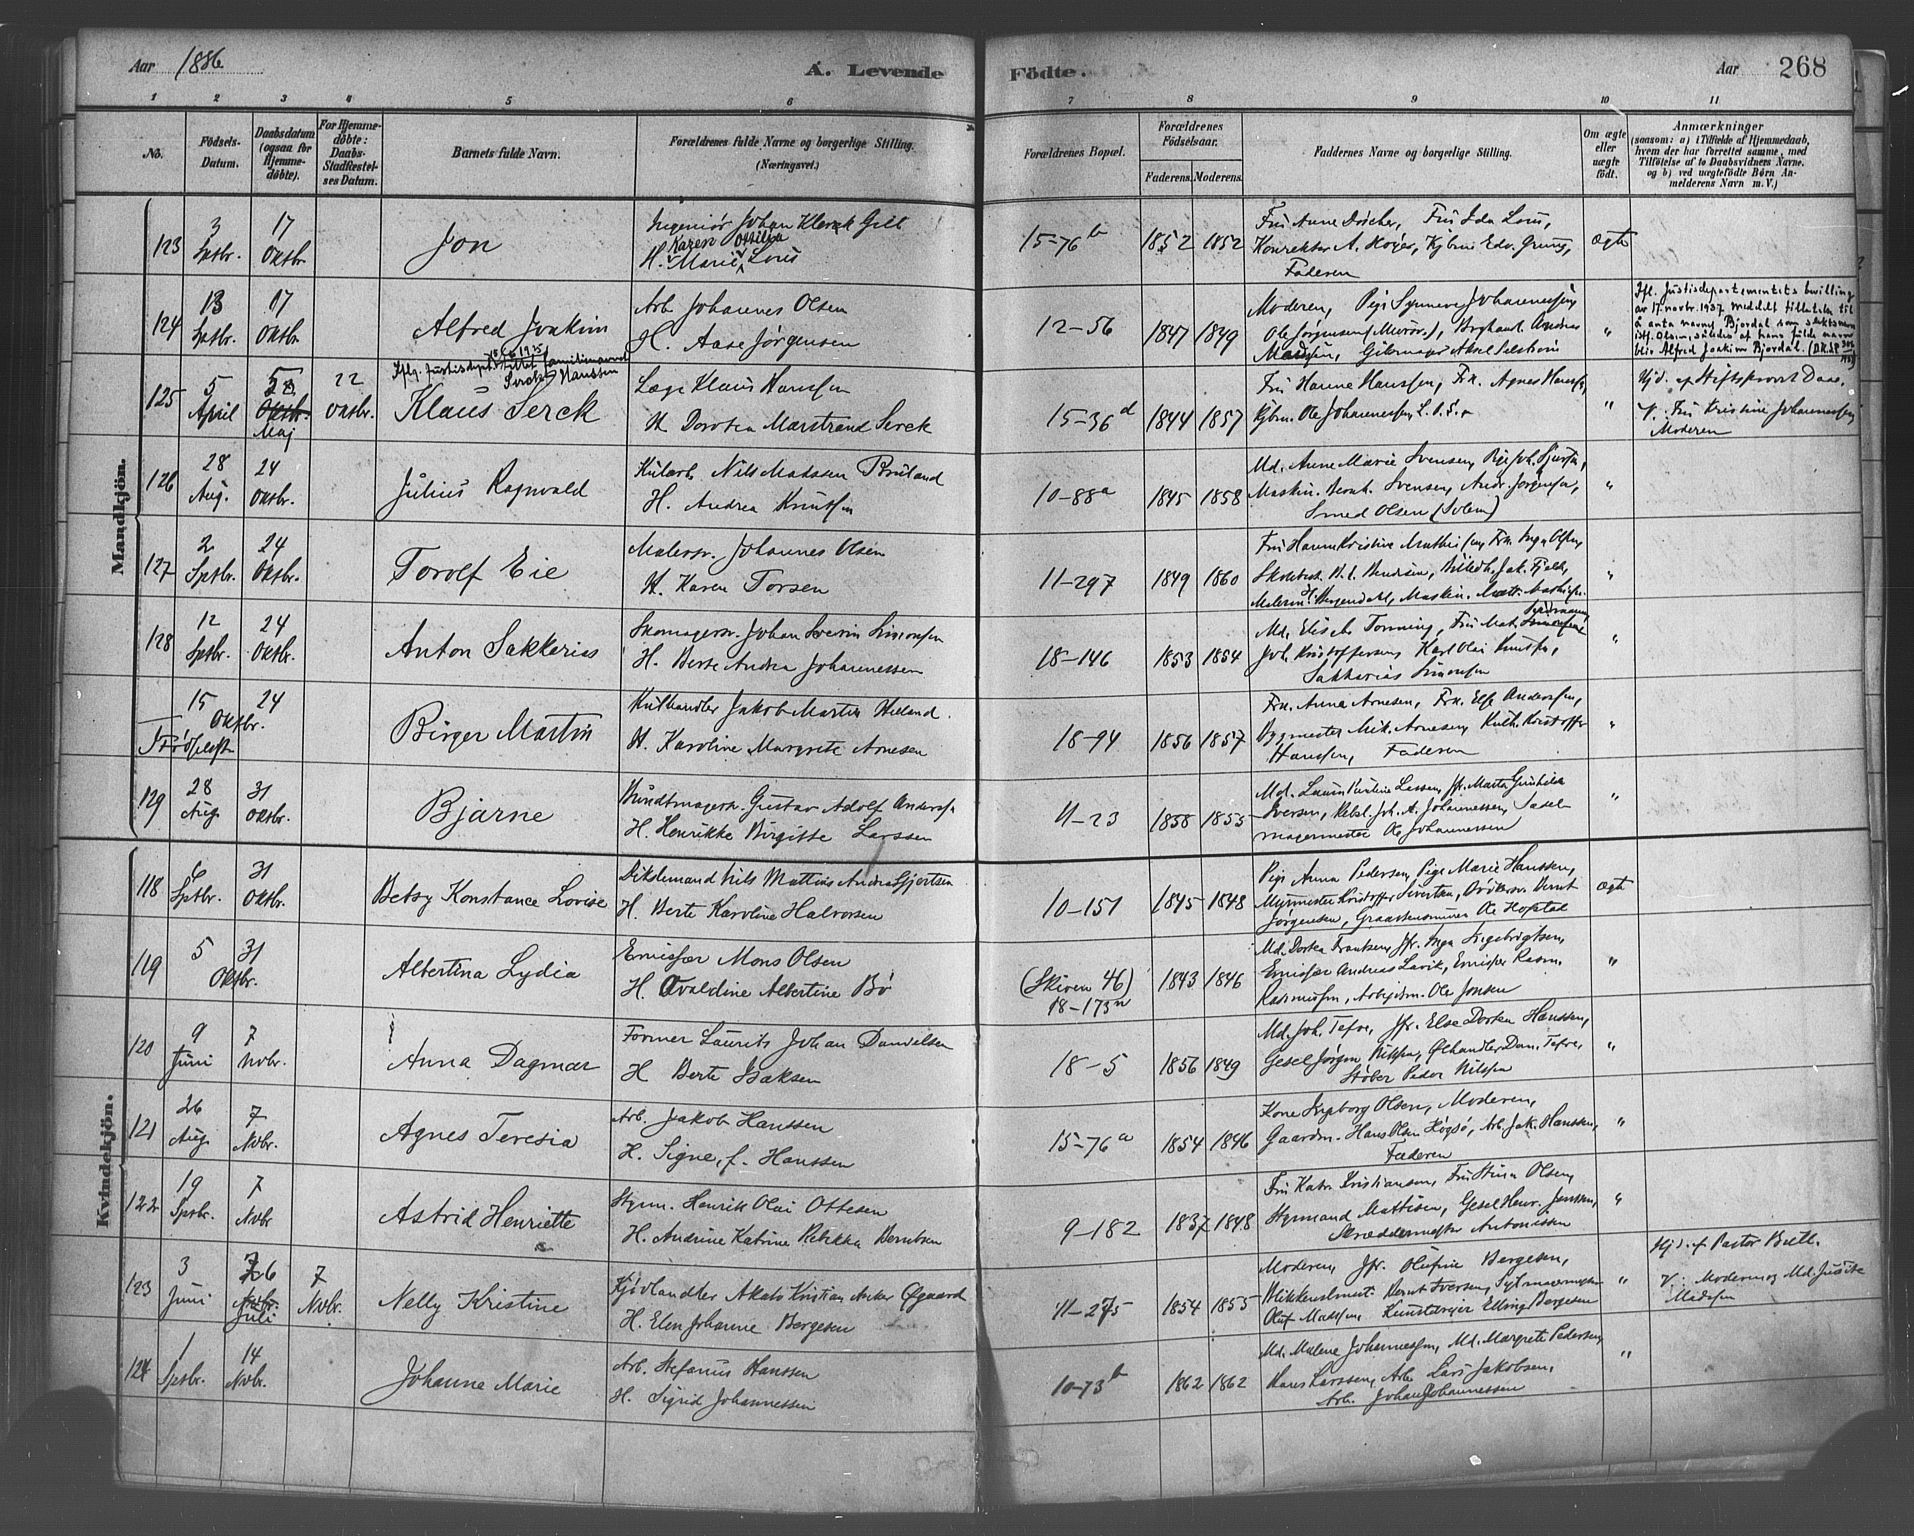 Aar 1886
A. Levende
Födte.
Aar
268
1 2 3 4 5 6 7 8 9 10 11
No.
Födsels-Datum.
Daabsdatum (ogsaa for Hjemmedöbte).
For Hjemmedöbte: Daabs-Stadfestelses Datum.
Barnets fulde Navn.
Forældrenes fulde Navne og borgerlige Stilling. (Næringsvei.)
Forældrenes Bopæl.
Forældrenes Födselsaar.
Faderens. Moderens.
Faddernes Navne og borgerlige Stilling.
Om ægte eller uægte födt.
Anmærkninger
(saasom: a) i Tilfælde af Hjemmedaab, hvem der har forrettet samme, med Tilföielse af to Daabsvidners Navne. og b) ved uægtefödte Börn Anmelderens Navn m. V.)
Mandkjön.
123 3 Sptbr. 17 Oktbr. Jon
Ingeniør Johan Klerck Gill
H. Karen Marie Ottilia Lous
15-76 b 1852 1852
Fru Anne Dircher, Fru Ida Lous,
Konrektor A. Høyer, Kjbm. Edv. Grung,
Faderen
ægte
124 13 Sptbr. 17 Oktbr. Alfred Joakim
Arb. Johannes Olsen
H. Aase Jørgensen
12-56 1847 1849
Moderen, Pige Synneve Johannessen
Ole Jørgensen (Murer),
"
Ifl. Justisdepartementets bevilling
av 17. novbr. 1937 meddelt tillatelse til
å anta navnet Bjordal som slektsnavn
istf. Olsen, således at hans fulde navn
blir Alfred Joakim Bjordal.
125 5 April Oktbr. Maj 22 Oktbr.
Klaus Serck
Serck Hanssen
Læge Klaus Hanssen
H. Dorotea Marstrand Serck
15-36 d 1844 1857
Fru Hanne Hanssen, Frk. Agnes Hanssen,
Kjbm. Ole Johannessen,
"
Hjd. af Stiftsprovst Daae.
V. Fru Kristine Johannessen
Moderen
126 28 Aug. 24 Oktbr. Julius Ragnvald
Nils Madsen Bruland
H. Andrea Knutsen
10-88a 1845 1858
Md. Anne Marie Svensen,
Maskin. Bernt Svensen, Andr. Jørgensen,
Smed Olsen (Solem)
"
127 2 Sptbr. 24 Oktbr. Torolf Eie
Malersv. Johannes Olsen
H. Karen Torsen
11-297 1849 1860
Fru Hanne Kristine Mathisen, Frk. Inga Olsen,
"
128 12 Sptbr. 24 Oktbr. Anton Sakkarias
Skomagersv. Johan Severin Simonsen
H. Berte Andrea Johannessen
18-146 1853 1854
Md. Elisabe Torning,
Joh. Kristoffersen, Karl Olai Knutsen,
Sakkarias Simonsen
"
15 Oktbr. 24 Birger Martin
Kulhandler Jakob Martin Heland.
H. Karoline Margrete Arnesen
18-94 1856 1857
Frk. Anna Arnesen, Frk. Else Andersen,
Bygmester Mik. Arnesen, Kulh. Kristoffer
Hanssen, Faderen
"
129 28 Aug. 31 Oktbr. Bjarne
Bundtmagersv. Gustav Adolf Andersen
H. Henrikke Birgitte Larssen
11-23 1858 1855
Md. Laura Pauline Larsen, Jfr. Marta Gunhilda
Iversen, Joh. A. Johannessen, Sadel-
magermester Ole Johannessen
"
Kvindekjön.
118 6 Sptbr. 31 Oktbr. Betsy Konstance Lovise
Dikdemand Nils Mattias Andreas Gjertsen
H. Berte Karoline Halvorsen
10-151 1845 1848
Pige Anna Pedersen, Pige Marie Hanssen,
Murmester Kristoffer Sivertsen, Bødkersv. Bernt
Jørgensen, Graastensmurer Ole Hopstal
ægte
119 5 31 Oktbr. Albertina Lydia
Emissær Mons Olsen
H. Ovaldine Albertine Bø
(Skiven 46)
18-173 1843 1846
Md. Dortea Frantsen, Jfr. Inga Ingebrigtsen,
Emissær Andreas Lavik, Emissær Rasm.
Rasmussen, Arbeidsm. Ole Jonsen
"
120 9 Juni 7 Novbr. Anna Dagmar
Former Laurits Johan Danielsen
H. Berte Isaksen
18-5 1856 1849
Md. Joh. Tefre, Jfr. Else Dortea Hanssen,
Gesel Jørgen Nilssen, Ølhandler Dan. Tefre,
Støber Peder Nilssen
"
121 26 Aug. 7 Nvbr. Agnes Teresia
Arb. Jakob Hanssen
H. Signe, f. Hanssen
15-76 a 1854 1846
Kone Ingeborg Olsen, Moderen,
Gaardm. Hans Olsen Høgsø, Arb. Jak. Hanssen,
Faderen
"
122 19 Sptbr. 7 Nvbr. Astrid Henriette
Styrm. Henrik Olai Ottesen
H. Andrine Katrine Rebekka Berntsen
9-182 1837 1848
Fru Katr. Kristiansen, Fru Stina Olsen,
Styrmand Mattisen, Gesel Henr. Jenssen,
Skræddermester Antonissen
"
123 3 Juni 26 Nvbr. Juli 7 Nvbr. Nelly Kristine
Kjødhandler Akato Kristian Anker Øgaard
H. Elen Johanne Bergesen
11-275 1854 1855
Moderen, Jfr. Olufine Bergesen,
Blikkenslmest. Bernt Iversen,
Oluf Madssen, Kunstdreier Elling Bergesen
"
Hjd. af Pastor Bull.
V. Moderen og Md. Jusine
Madssen
124 1 Sptbr. 14 Nvbr. Johanne Marie
Arb. Stefanus Hanssen
H. Sigrid Johannessen
10-73 b 1862 1862
Md. Malene Johannessen, Md. Margrete Pedersen,
Hans Larssen, Arb. Lars Jakobsen,
Arb. Johan Johannessen
"